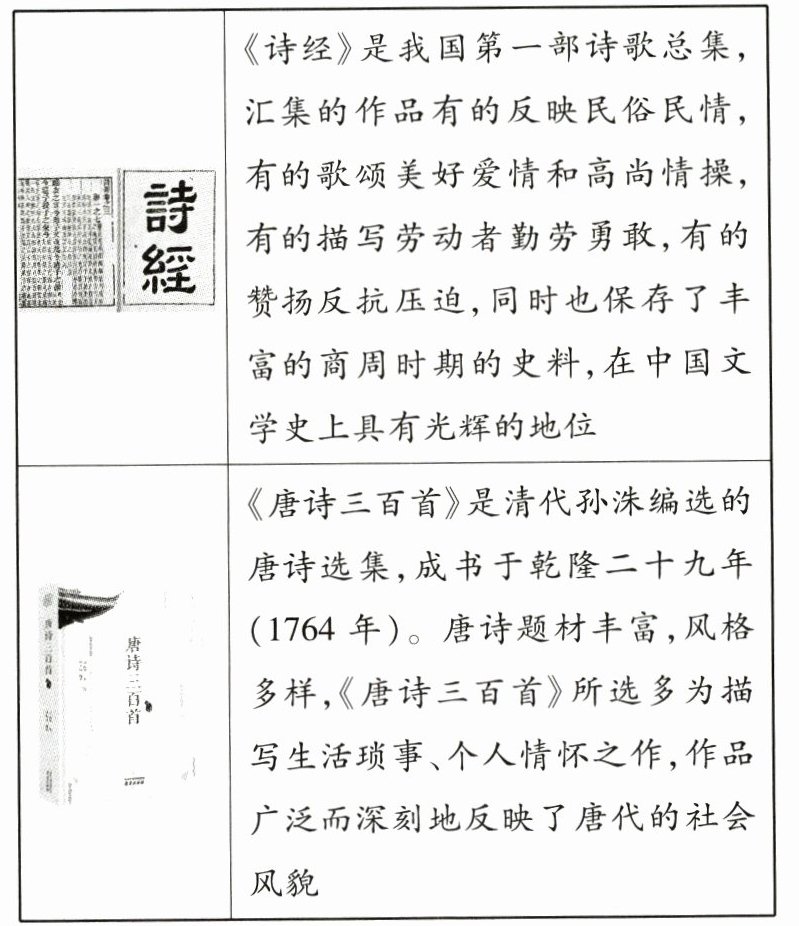 詩
經
《诗经》是我国第一部诗歌总集,
汇集的作品有的反映民俗民情,
有的歌颂美好爱情和高尚情操,
有的描写劳动者勤劳勇敢,有的
赞扬反抗压迫,同时也保存了丰
富的商周时期的史料,在中国文
学史上具有光辉的地位
唐诗三百首
唐诗三百首
《唐诗三百首》是清代孙洙编选的
唐诗选集,成书于乾隆二十九年
(1764 年)。唐诗题材丰富,风格
多样,《唐诗三百首》所选多为描
写生活琐事、个人情怀之作,作品
广泛而深刻地反映了唐代的社会
风貌